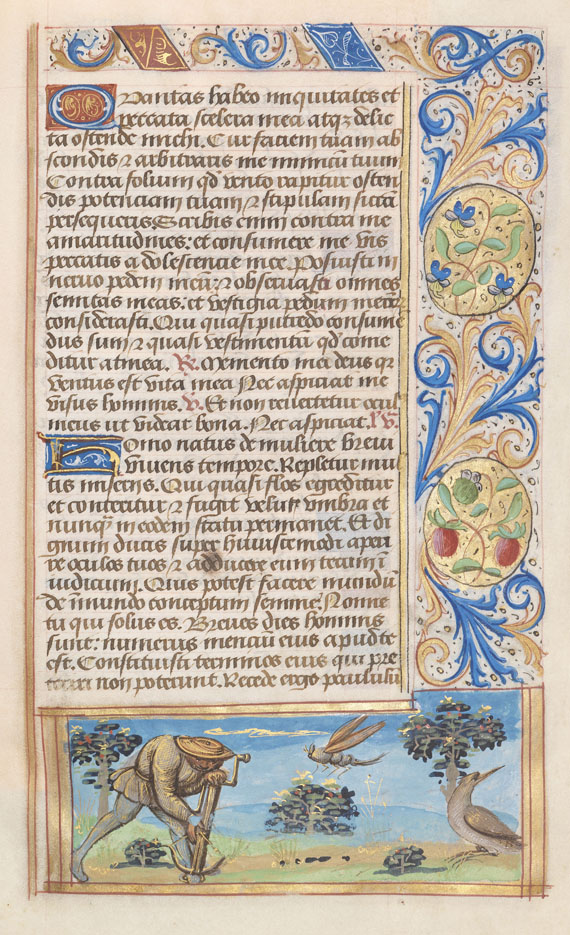 Quantas habeo iniquitates et
peccata scelera mea atqz delic
ta ostende michi. Cur faciem tuam ab
scondis ⁊ arbitraris me inimicū tuum
Contra folium qd vento rapitur osten
dis potenciam tuam ⁊ stipulam siccā
persequeris. Scribis enim contra me
amaritudines: et consumere me vis
peccatis adolescentie mee. Posuisti in
neruo pedem meū: ⁊ obseruasti omnes
semitas meas: et vestigia pedum meorū
considerasti. Qui quasi putredo consume
dus sum ⁊ quasi vestimentū qd come
ditur a tinea. R. Memento mei deus qr
ventus est vita mea Nec aspiciat me
visus hominis. V. Et non reuertetur ocul
meus ut videat bona. Nec aspiciat.
Homo natus de muliere breui
viuens tempore. Repletur mul
tis miseriis. Qui quasi flos egreditur
et conteritur ⁊ fugit velut vmbra et
nunqz in eodem statu permanet. Et di
gnum ducis super huiuscemodi aperi
re oculos tuos ⁊ adducere eum tecum ī
iudicium. Quis potest facere mundū
de īmundo conceptum semine. Nonne
tu qui solus es. Breues dies hominis
sunt: numerus mensiū eius apud te
est. Constituisti terminos eius qui pre
non poterunt. Recede ergo paululū